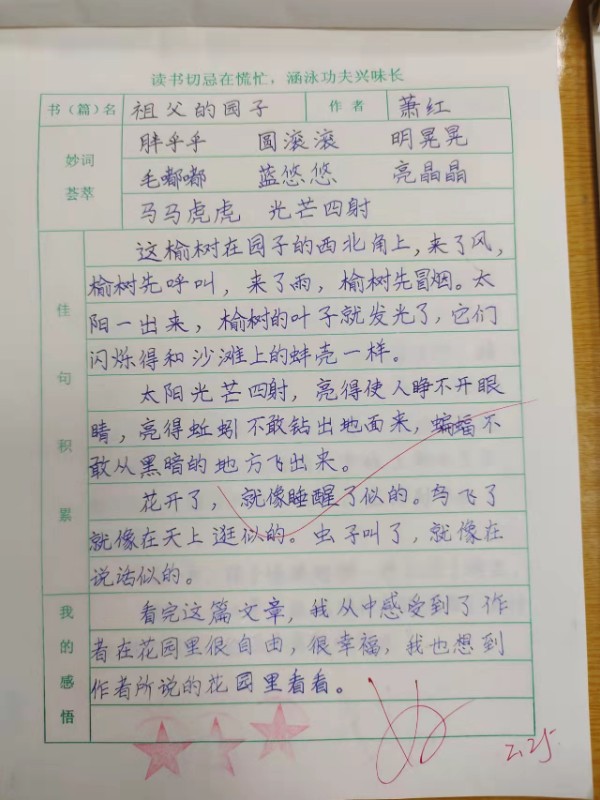 读书切忌在慌忙，涵泳功夫兴味长
书（篇）名 祖父的园子 作者 萧红
妙词荟萃
胖乎乎 圆滚滚 明晃晃
毛嘟嘟 蓝悠悠 亮晶晶
马马虎虎 光芒四射
佳句积累
这榆树在园子的西北角上，来了风，
榆树先呼叫，来了雨，榆树先冒烟。太
阳一出来，榆树的叶子就发光了，它们
闪烁得和沙滩上的蚌壳一样。
太阳光芒四射，亮得使人睁不开眼
睛，亮得蚯蚓不敢钻出地面来，蝙蝠不
敢从黑暗的地方飞出来。
花开了，就像睡醒了似的。鸟飞了
就像在天上逛似的。虫子叫了，就像在
说话似的。
我的感悟
看完这篇文章，我从中感受到了作
者在花园里很自由，很幸福，我也想到
作者所说的花园里看看。
2.25.